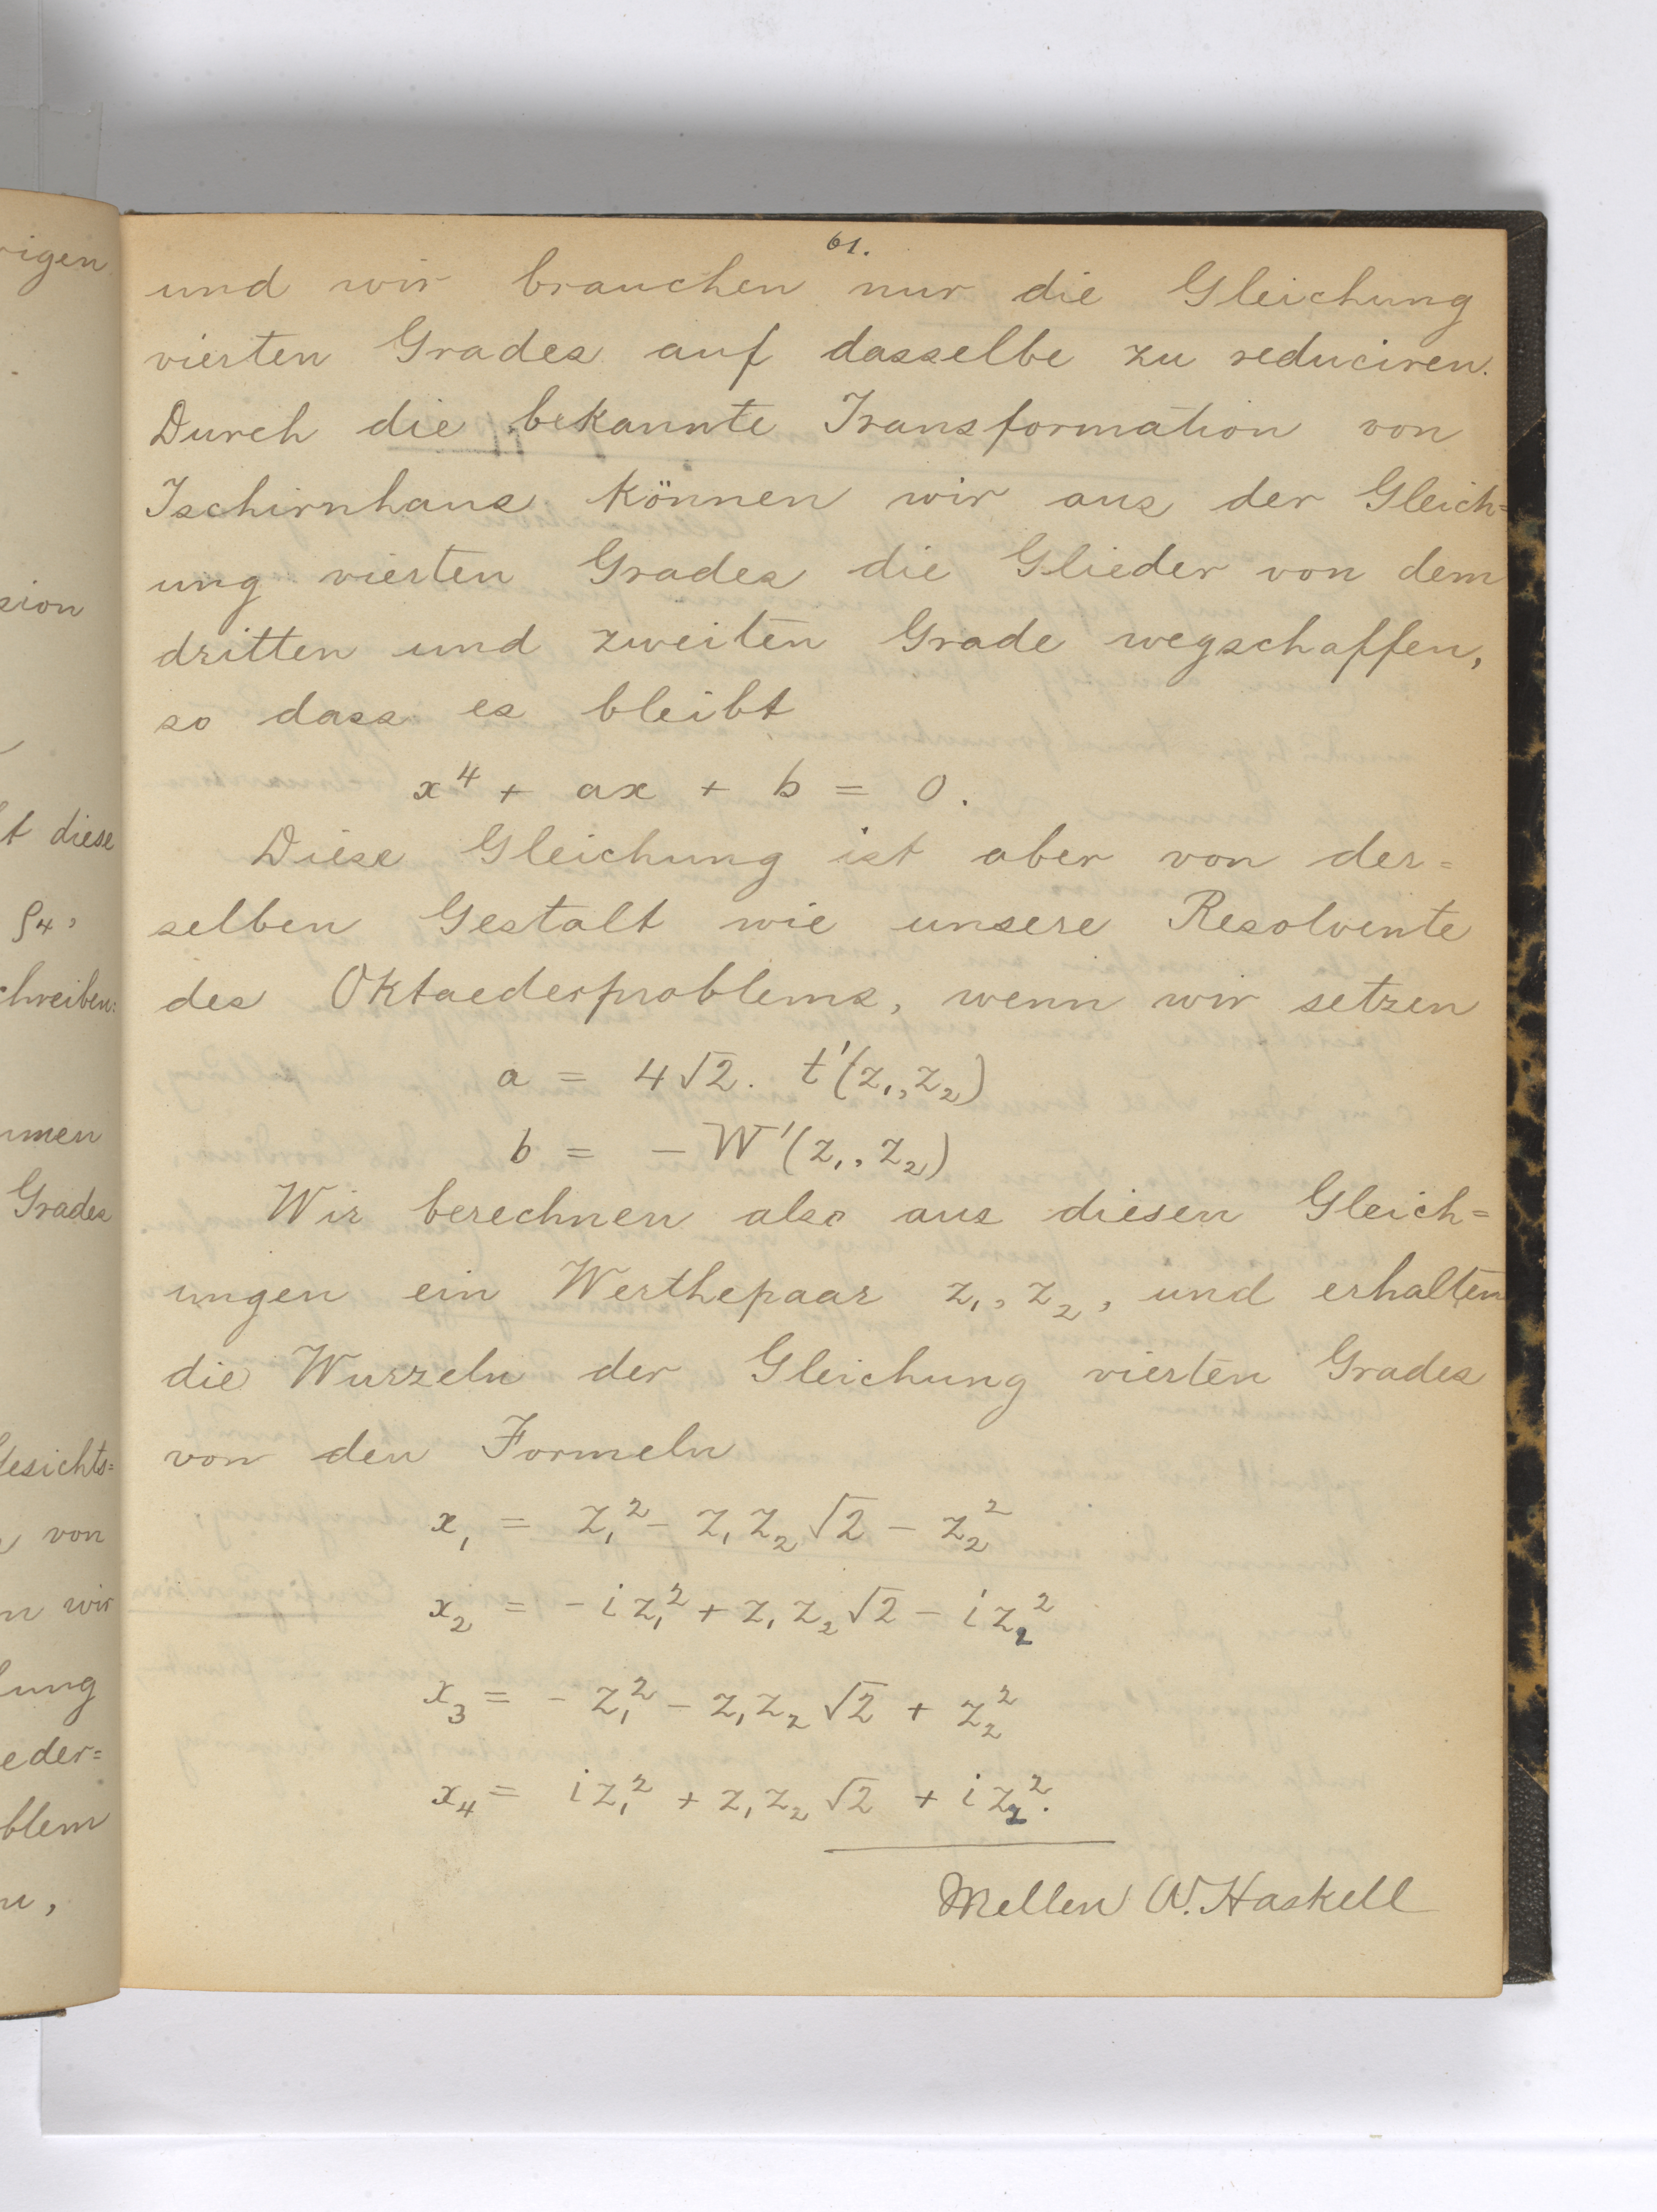 rigen
sion
t diese
ρ4,
chreiben:
men
Grades
Gesichts=
von
n wir
lung
eder=
blem
61.
und wir brauchen nur die Gleichung
vierten Grades auf dasselbe zu reduciren.
Durch die bekannte Transformation von
Tschirnhaus können wir aus der Gleich=
ung vierten Grades die Glieder von dem
dritten und zweiten Grade wegschaffen,
so dass es bleibt
x⁴ + ax + b = 0.
Diese Gleichung ist aber von der=
selben Gestalt wie unsere Resolvente
des Oktaederproblems, wenn wir setzen
a = 4√2. t'(z₁, z₂)
b = − W'(z₁, z₂)
Wir berechnen also aus diesen Gleich=
ungen ein Werthepaar z₁, z₂, und erhalten
die Wurzeln der Gleichung vierten Grades
von den Formeln
x₁ = z₁² − z₁z₂√2 − z₂²
x₂ = − i z₁² + z₁z₂√2 − i z₂²
x₃ = − z₁² − z₁z₂√2 + z₂²
x₄ = i z₁² + z₁z₂√2 + i z₂².
Mellen W. Haskell